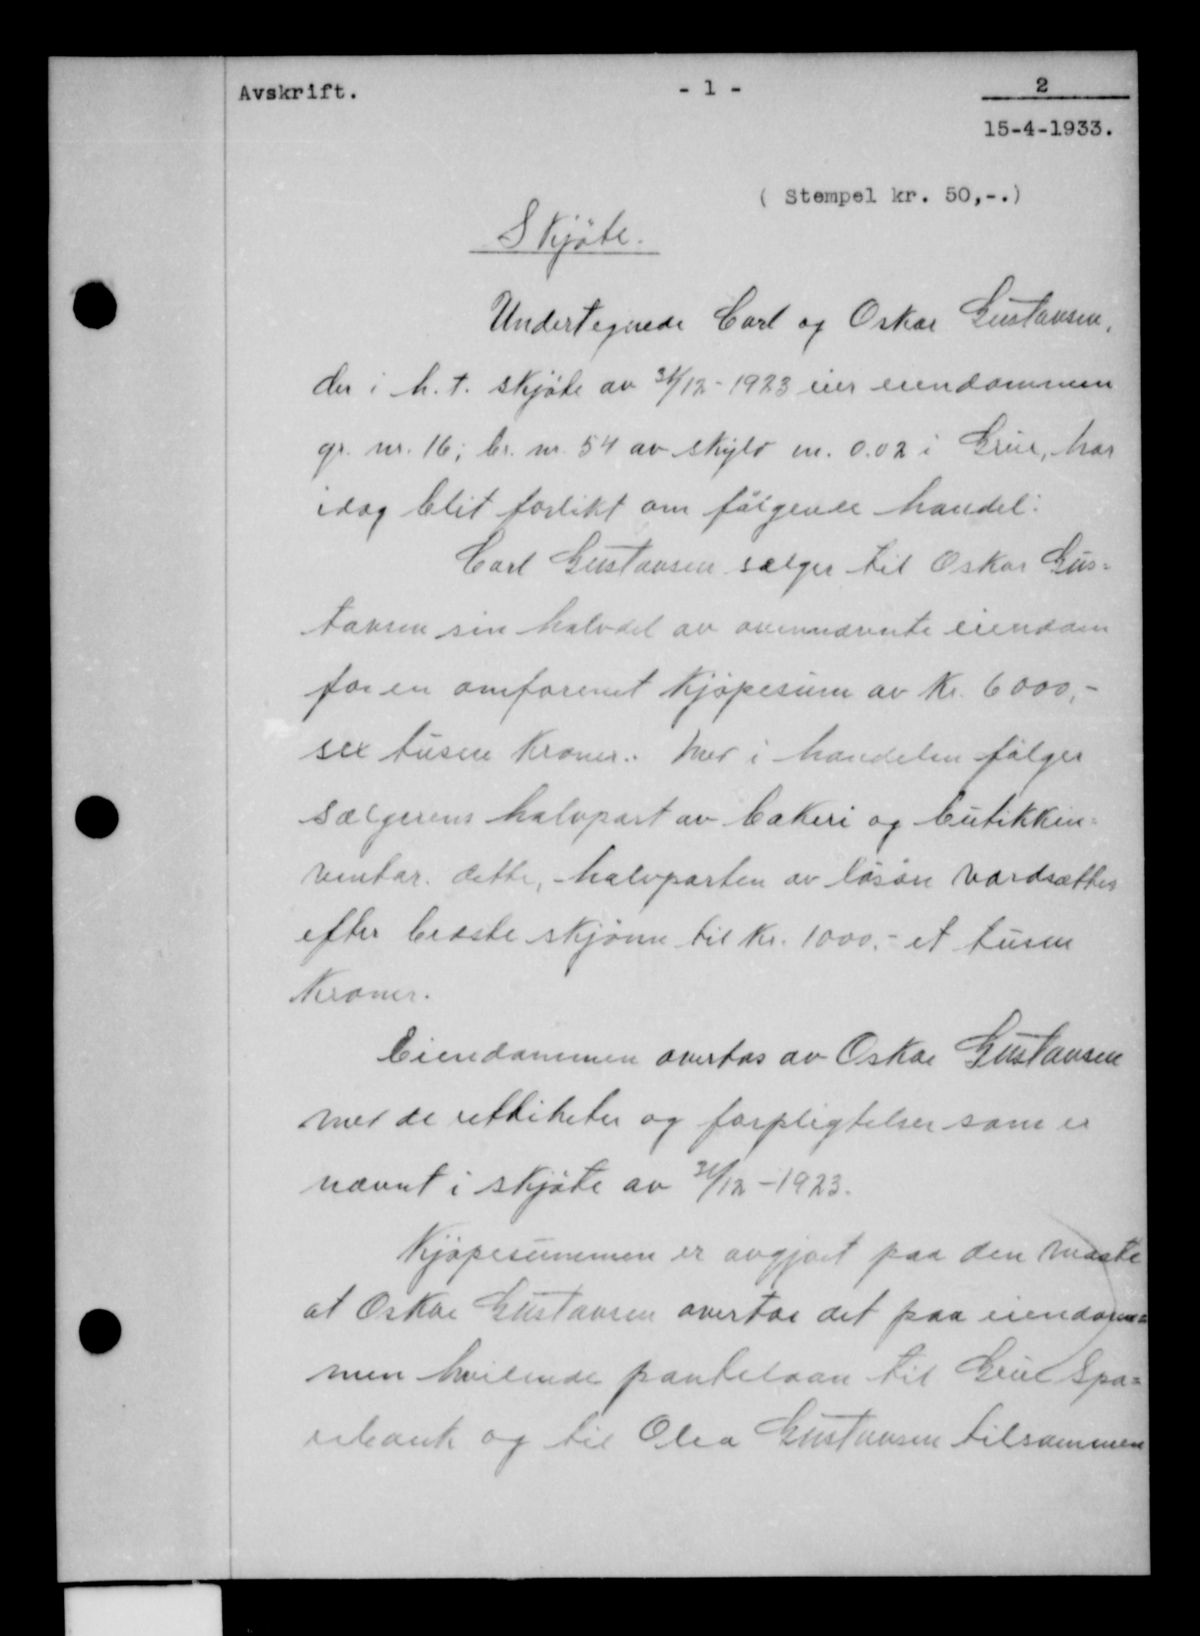 Avskrift.
- 1 -
2
15-4-1933.
( Stempel kr. 50,-.)
Skjøte.
Undertegnede Carl og Oskar Gustavsen,
der i h. t. skjøte av 31/12-1923 eier eiendommen
gr. nr. 16; br. nr. 54 av skyld m. 0.02 i Grue, har
idag blit forlikt om følgende handel:
Carl Gustavsen sælger til Oskar Gus=
tavsen sin halvdel av ovennævnte eiendom
for en omforenet kjøpesum av Kr. 6000,-
sex tusen kroner.. Med i handelen følger
sælgerens halvpart av bakeri og butikkin=
ventar. dette, - halvparten av løsøre værdsættes
efter bedste skjønn til Kr. 1000.- et tusen
Kroner.
Eiendommen overtas av Oskar Gustavsen
med de rettiheter og forpligtelser som er
nævnt i skjøte av 31/12-1923.
Kjøpesummen er avgjort paa den maate
at Oskar Gustavsen overtar det paa eiendom=
men hvilende pantelaan til Grue Spa=
rebank og til Olea Gustavsen tilsammen